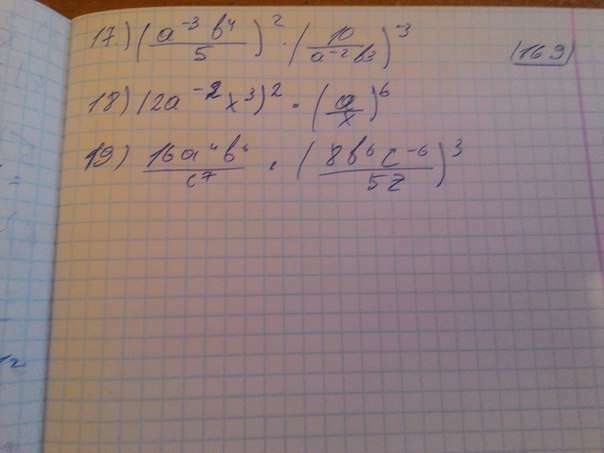 17) (a⁻³ b⁴ / 5)² · (10 / a⁻² b3)⁻³ (169)
18) (2a⁻² x³)² · (a / x)⁶
19) 16 a⁴ b⁴ / c⁷ · (8 b⁶ c⁻⁶ / 5z)³